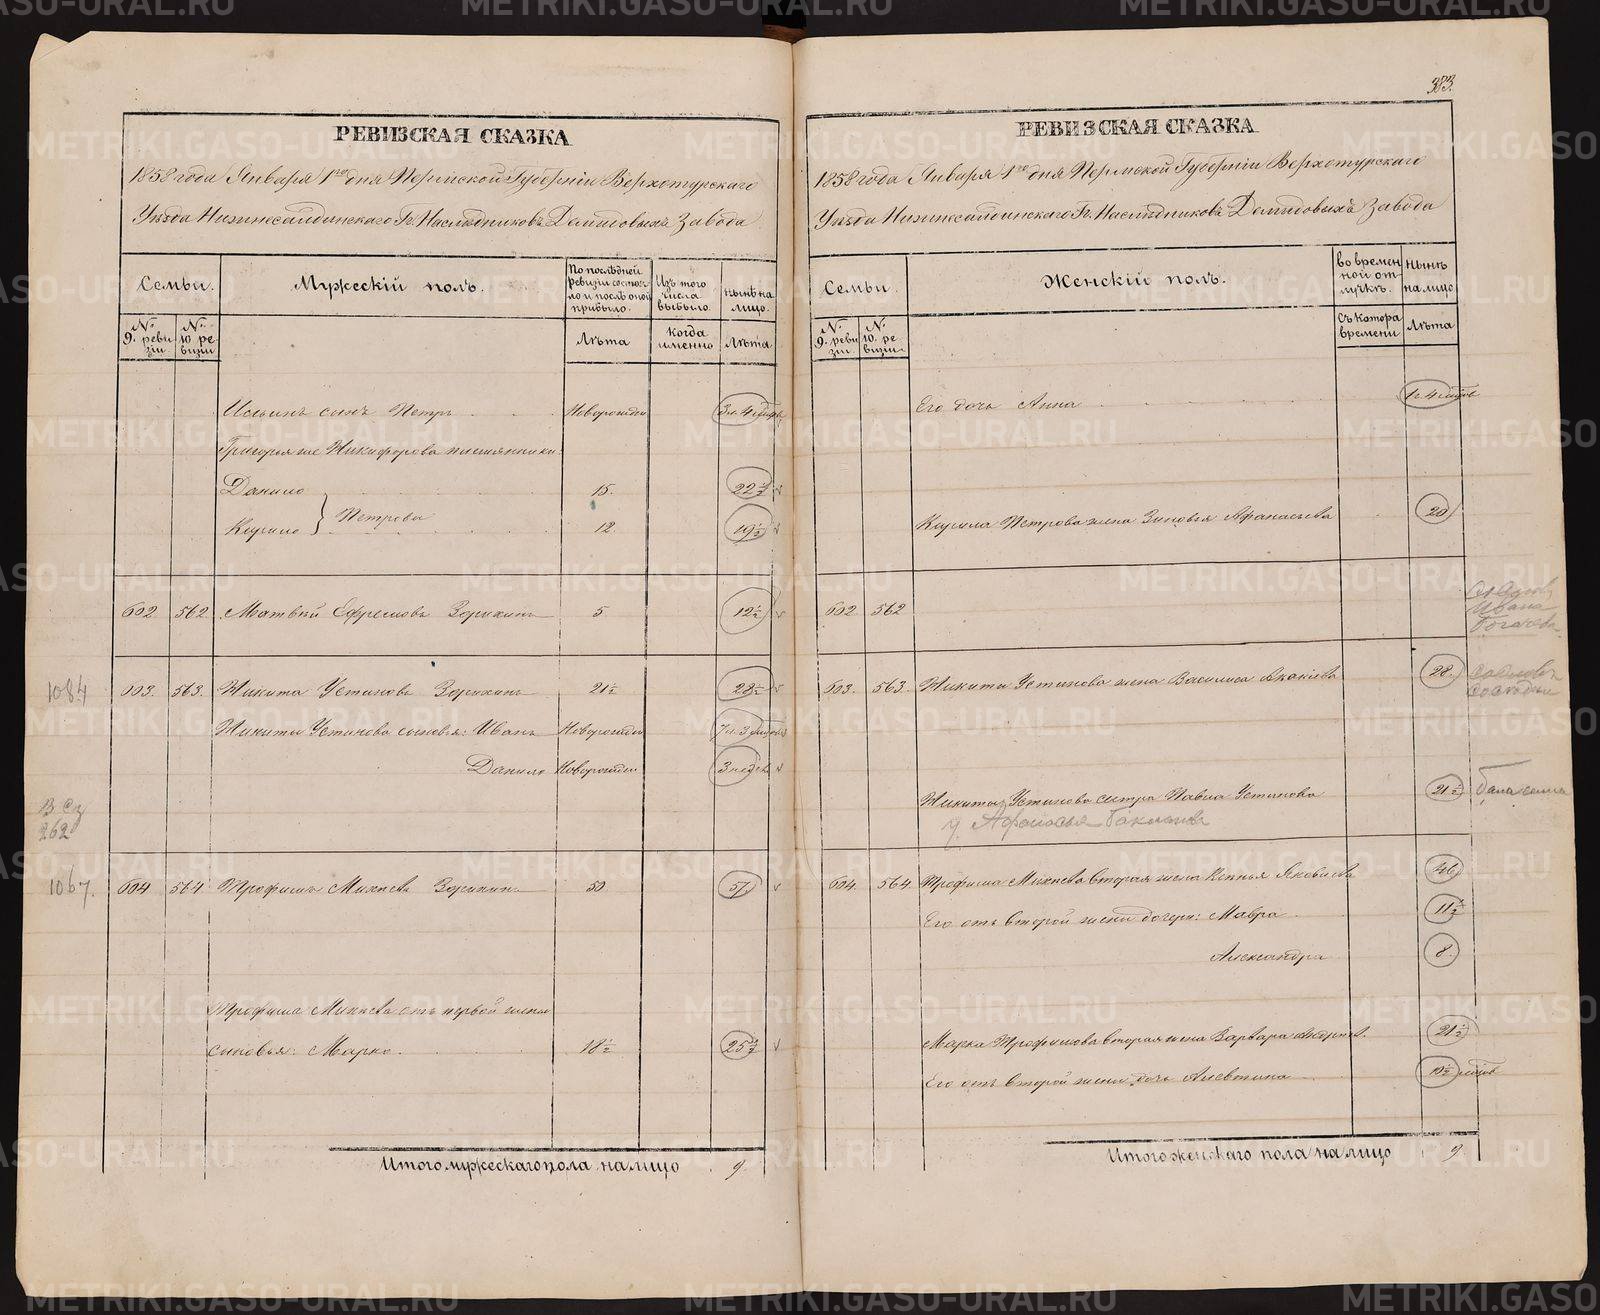 383.
РЕВИЗСКАЯ СКАЗКА
1858 года Января 1го дня Пермской Губерніи Верхотурскаго
Уѣзда Нижнесалдинскаго Гг. Наслѣдниковъ Демидовыхъ Завода
Семьи.
Мужескій полъ.
По послѣдней ревизіи состояло и послѣ оной прибыло.
Изъ того числа выбыло.
Нынѣ на лицо.
№ 9. ревизіи
№ 10. ревизіи
Лѣта
когда именно
Лѣта
Ильинъ сынъ Петръ
Новорожден
3 л. 4 мѣсяц
Григорья же Никифорова племянники:
Данило
15.
22½
Петровы
Кирило
12.
19½
602
562
Матвѣй Ефремовъ Зорихинъ
5
12½
1084
603.
563.
Никита Устиновъ Зорихинъ
21½
28½
Никиты Устинова сыновья: Иванъ
Новорожден
7 л. 3 мѣсяц
Данило
Новорожден
3 недѣл
262
1067.
604
564
Трофимъ Михѣевъ Зорихинъ
50
57
Трофима Михѣева отъ первой жены
сыновья: Марко.
18½
25½
Итого мужескаго пола на лицо
9.
РЕВИЗСКАЯ СКАЗКА
1858 года Января 1го дня Пермской Губерніи Верхотурскаго
Уѣзда Нижнесалдинскаго Гг. Наслѣдниковъ Демидовыхъ Завода
Семьи.
Женскій полъ.
во временной отлучкѣ.
нынѣ на лицо
№ 9. ревизіи
№ 10. ревизіи
Съ котора времени
Лѣта
Его дочь Анна
1 г. 4 мѣсяц
Кирила Петрова жена Зиновья Афанасьева
20
602
562
Ивана
603.
563.
Никиты Устинова жена Василиса Акакіева
28.
Никиты Устинова сестра Павла Устинова
21½
604.
564.
Трофима Михѣева вторая жена Ксенья Яковлева
46
Его отъ второй жены дочери: Мавра
11½
Александра
8.
Марка Трофимова вторая жена Варвара
21½
Его отъ второй жены дочь Алевтина
10½ мѣсяц
Итого женскаго пола на лицо
9.
METRIKI.GASO-URAL.RU